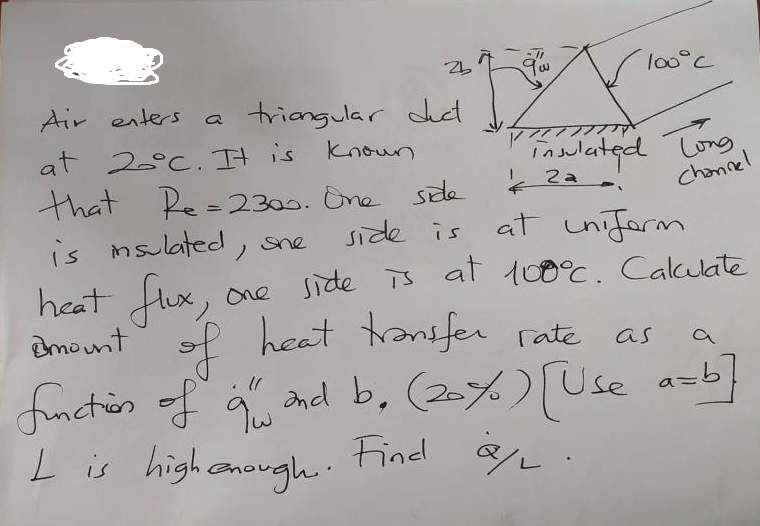 2b q̇"w 100°C
insulated Long
2a channel
Air enters a triangular duct
at 20°C. It is known
that Re = 2300. One side
is insulated, one side is at uniform
heat flux, one side is at 100°C. Calculate
amount of heat transfer rate as a
function of q̇"w and b. (20%) [Use a=b]
L is high enough. Find Q̇/L.